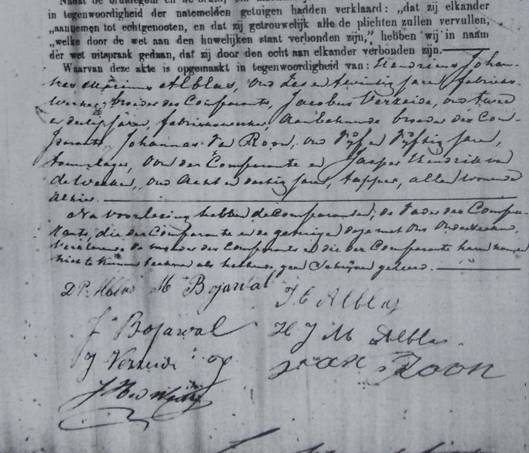 in tegenwoordigheid der natemelden getuigen hadden verklaard: „dat zij elkander
„aannemen tot echtgenooten, en dat zij getrouwelijk alle de plichten zullen vervullen,
„welke door de wet aan den huwelijken staat verbonden zijn," hebben wij in naam
der wet uitspraak gedaan, dat zij door den echt aan elkander verbonden zijn.
Waarvan deze akte is opgemaakt in tegenwoordigheid van: Hendricus Johan-
Alblas, oud Zes en twintig jaren, fabrieks-
werker, broeder des Comparants, Jacobus Verheide, oud twee
en dertig jaren, fabriekswerker, aanbehuwde broeder des Com-
parants, Johannes van Roon, oud vijf en vijftig jaren,
oom der Comparante en Jasper Hendrik van
de Werken, oud acht en dertig jaren, tapper, allen wonende
alhier.
Na voorlezing hebben de comparanten, de vader des Compa-
rants, die der Comparante en de getuigen deze met Ons onderteekend,
verklarende de moeder des Comparants en die der Comparante
niet te kunnen teekenen als hebbende geen schrijven geleerd.
D P Alblas M Bojarwal
J C Alblas
J Bojarwal
H J M Alblas
J Verheide
J van Roon